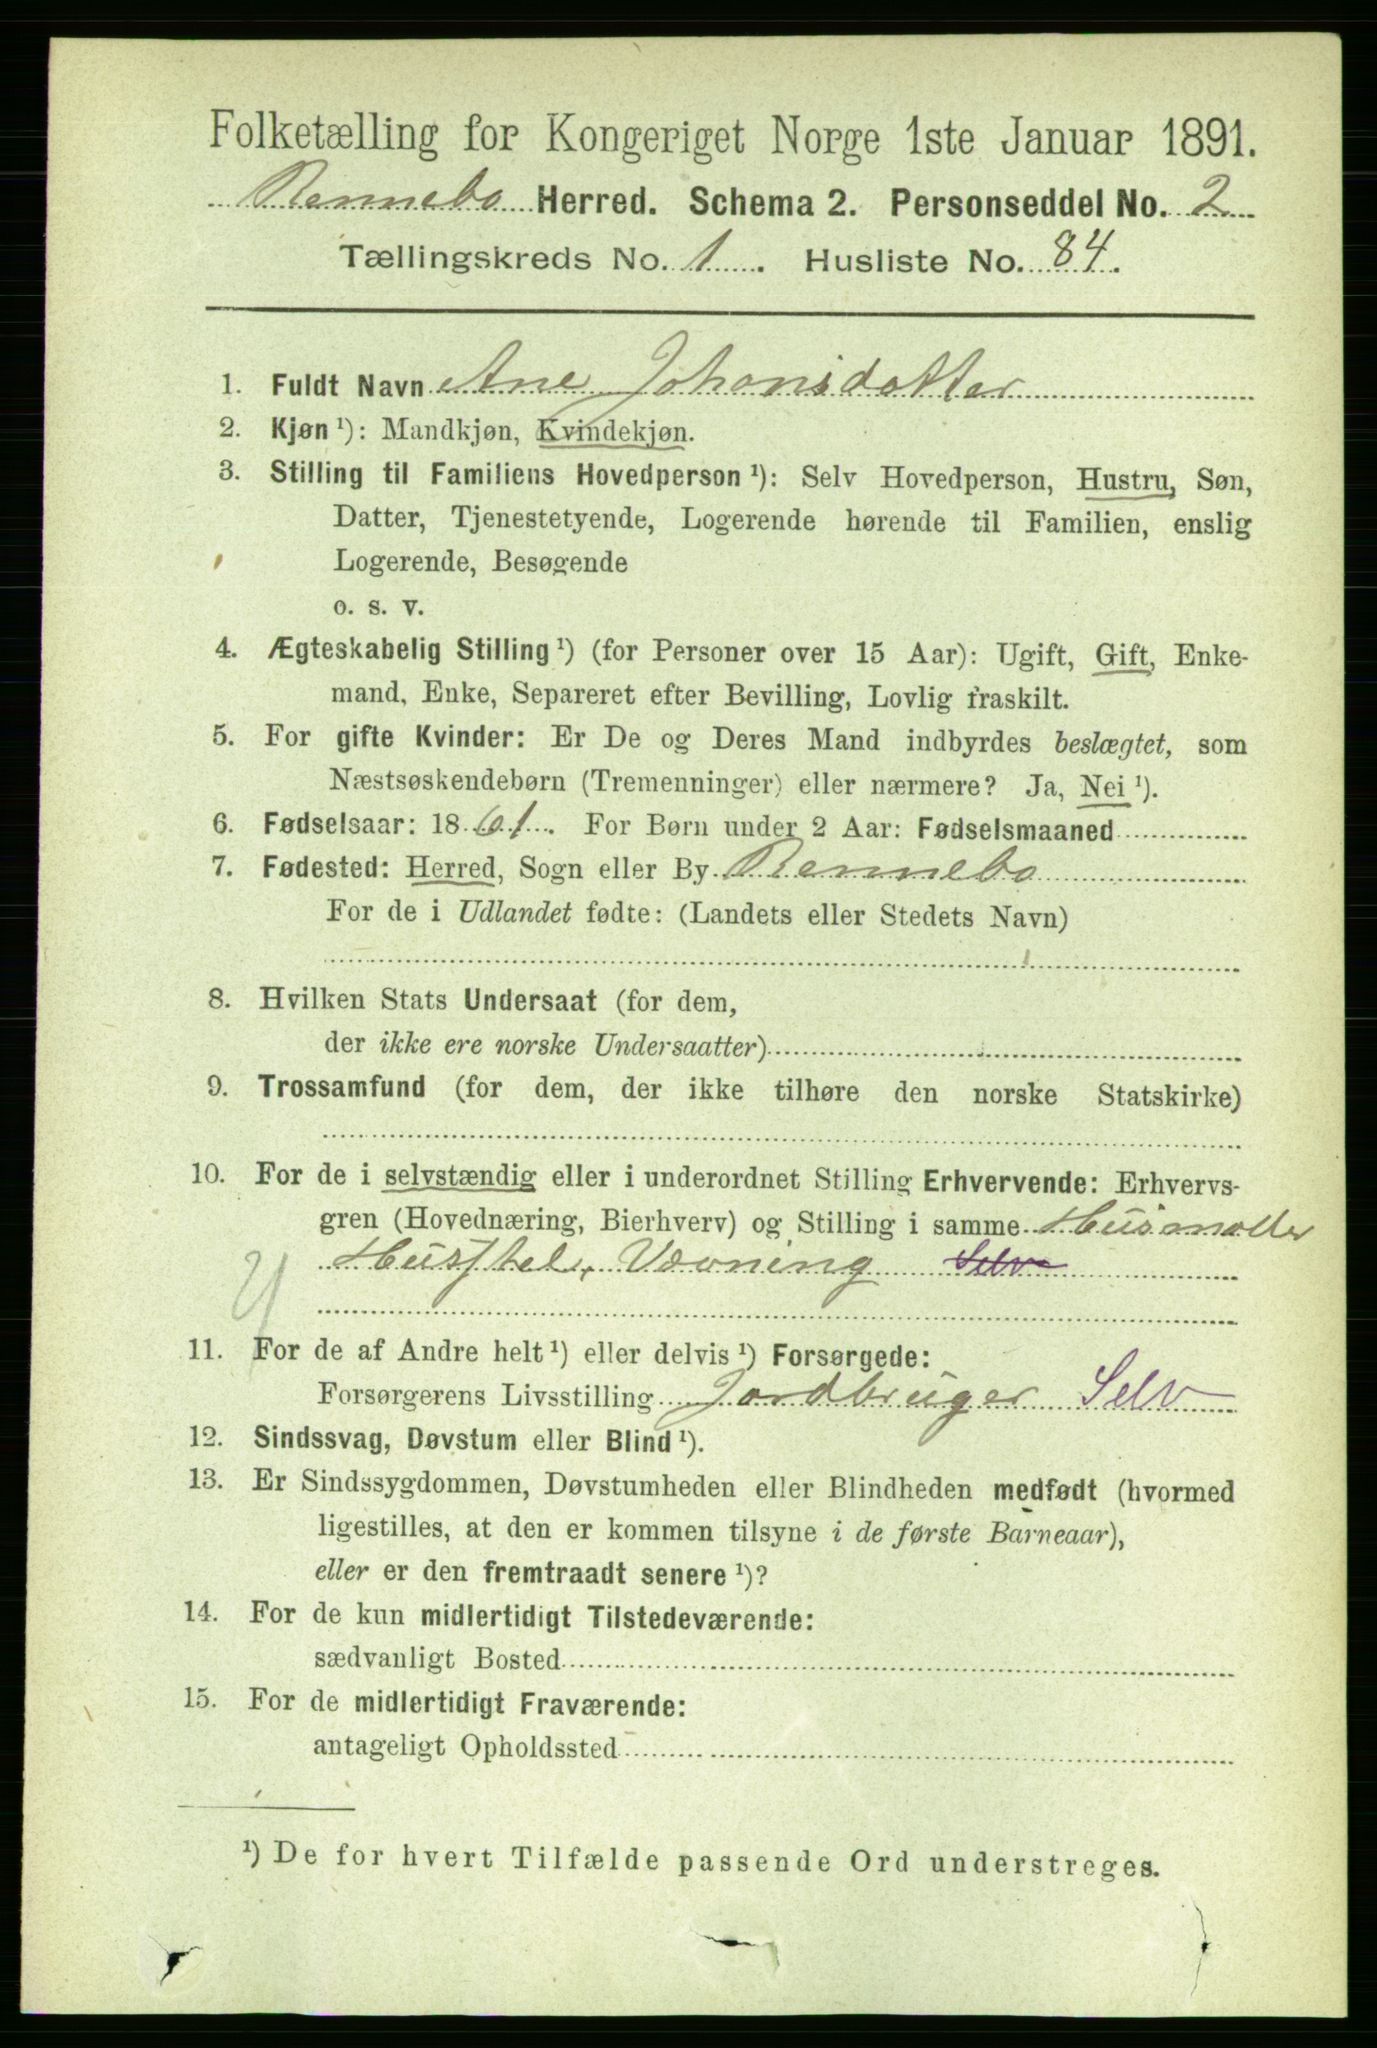 Folketælling for Kongeriget Norge 1ste Januar 1891.
Rennebo Herred. Schema 2. Personseddel No. 2
Tællingskreds No. 1. Husliste No. 84.
1. Fuldt Navn Ane Johansdatter
2. Kjøn ¹): Mandkjøn, Kvindekjøn.
3. Stilling til Familiens Hovedperson ¹): Selv Hovedperson, Hustru, Søn,
Datter, Tjenestetyende, Logerende hørende til Familien, enslig
Logerende, Besøgende
o. s. v.
4. Ægteskabelig Stilling ¹) (for Personer over 15 Aar): Ugift, Gift, Enke-
mand, Enke, Separeret efter Bevilling, Lovlig fraskilt.
5. For gifte Kvinder: Er De og Deres Mand indbyrdes beslægtet, som
Næstsøskendebørn (Tremenninger) eller nærmere? Ja, Nei ¹).
6. Fødselsaar: 1861. For Børn under 2 Aar: Fødselsmaaned
7. Fødested: Herred, Sogn eller By Rennebo
For de i Udlandet fødte: (Landets eller Stedets Navn)
8. Hvilken Stats Undersaat (for dem,
der ikke ere norske Undersaatter)
9. Trossamfund (for dem, der ikke tilhøre den norske Statskirke)
10. For de i selvstændig eller i underordnet Stilling Erhvervende: Erhvervs-
gren (Hovednæring, Bierhverv) og Stilling i samme Husmoder
Husstel, Vævning Selv
11. For de af Andre helt ¹) eller delvis ¹) Forsørgede:
Forsørgerens Livsstilling Jordbruger Selv
12. Sindssvag, Døvstum eller Blind ¹).
13. Er Sindssygdommen, Døvstumheden eller Blindheden medfødt (hvormed
ligestilles, at den er kommen tilsyne i de første Barneaar),
eller er den fremtraadt senere ¹)?
14. For de kun midlertidigt Tilstedeværende:
sædvanligt Bosted
15. For de midlertidigt Fraværende:
antageligt Opholdssted
¹) De for hvert Tilfælde passende Ord understreges.